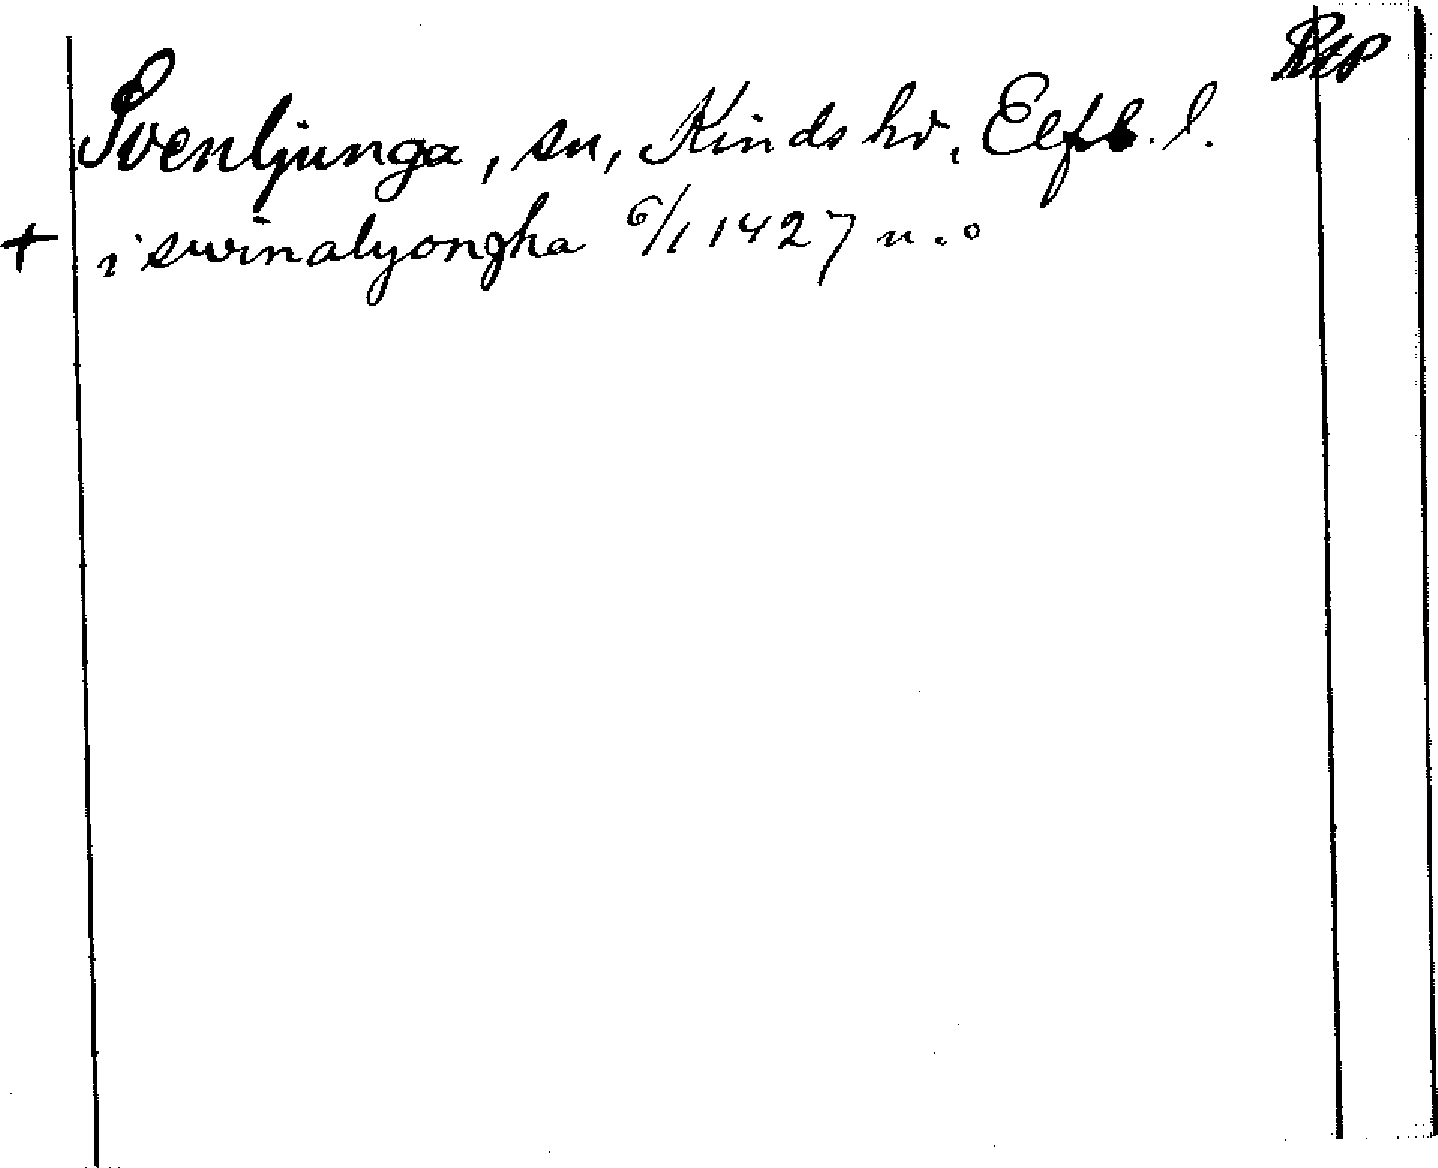 Svenljunga, sn, Kinds hd, Elfsb. l.
+ i swinalyongha 6/1 1427 n.o